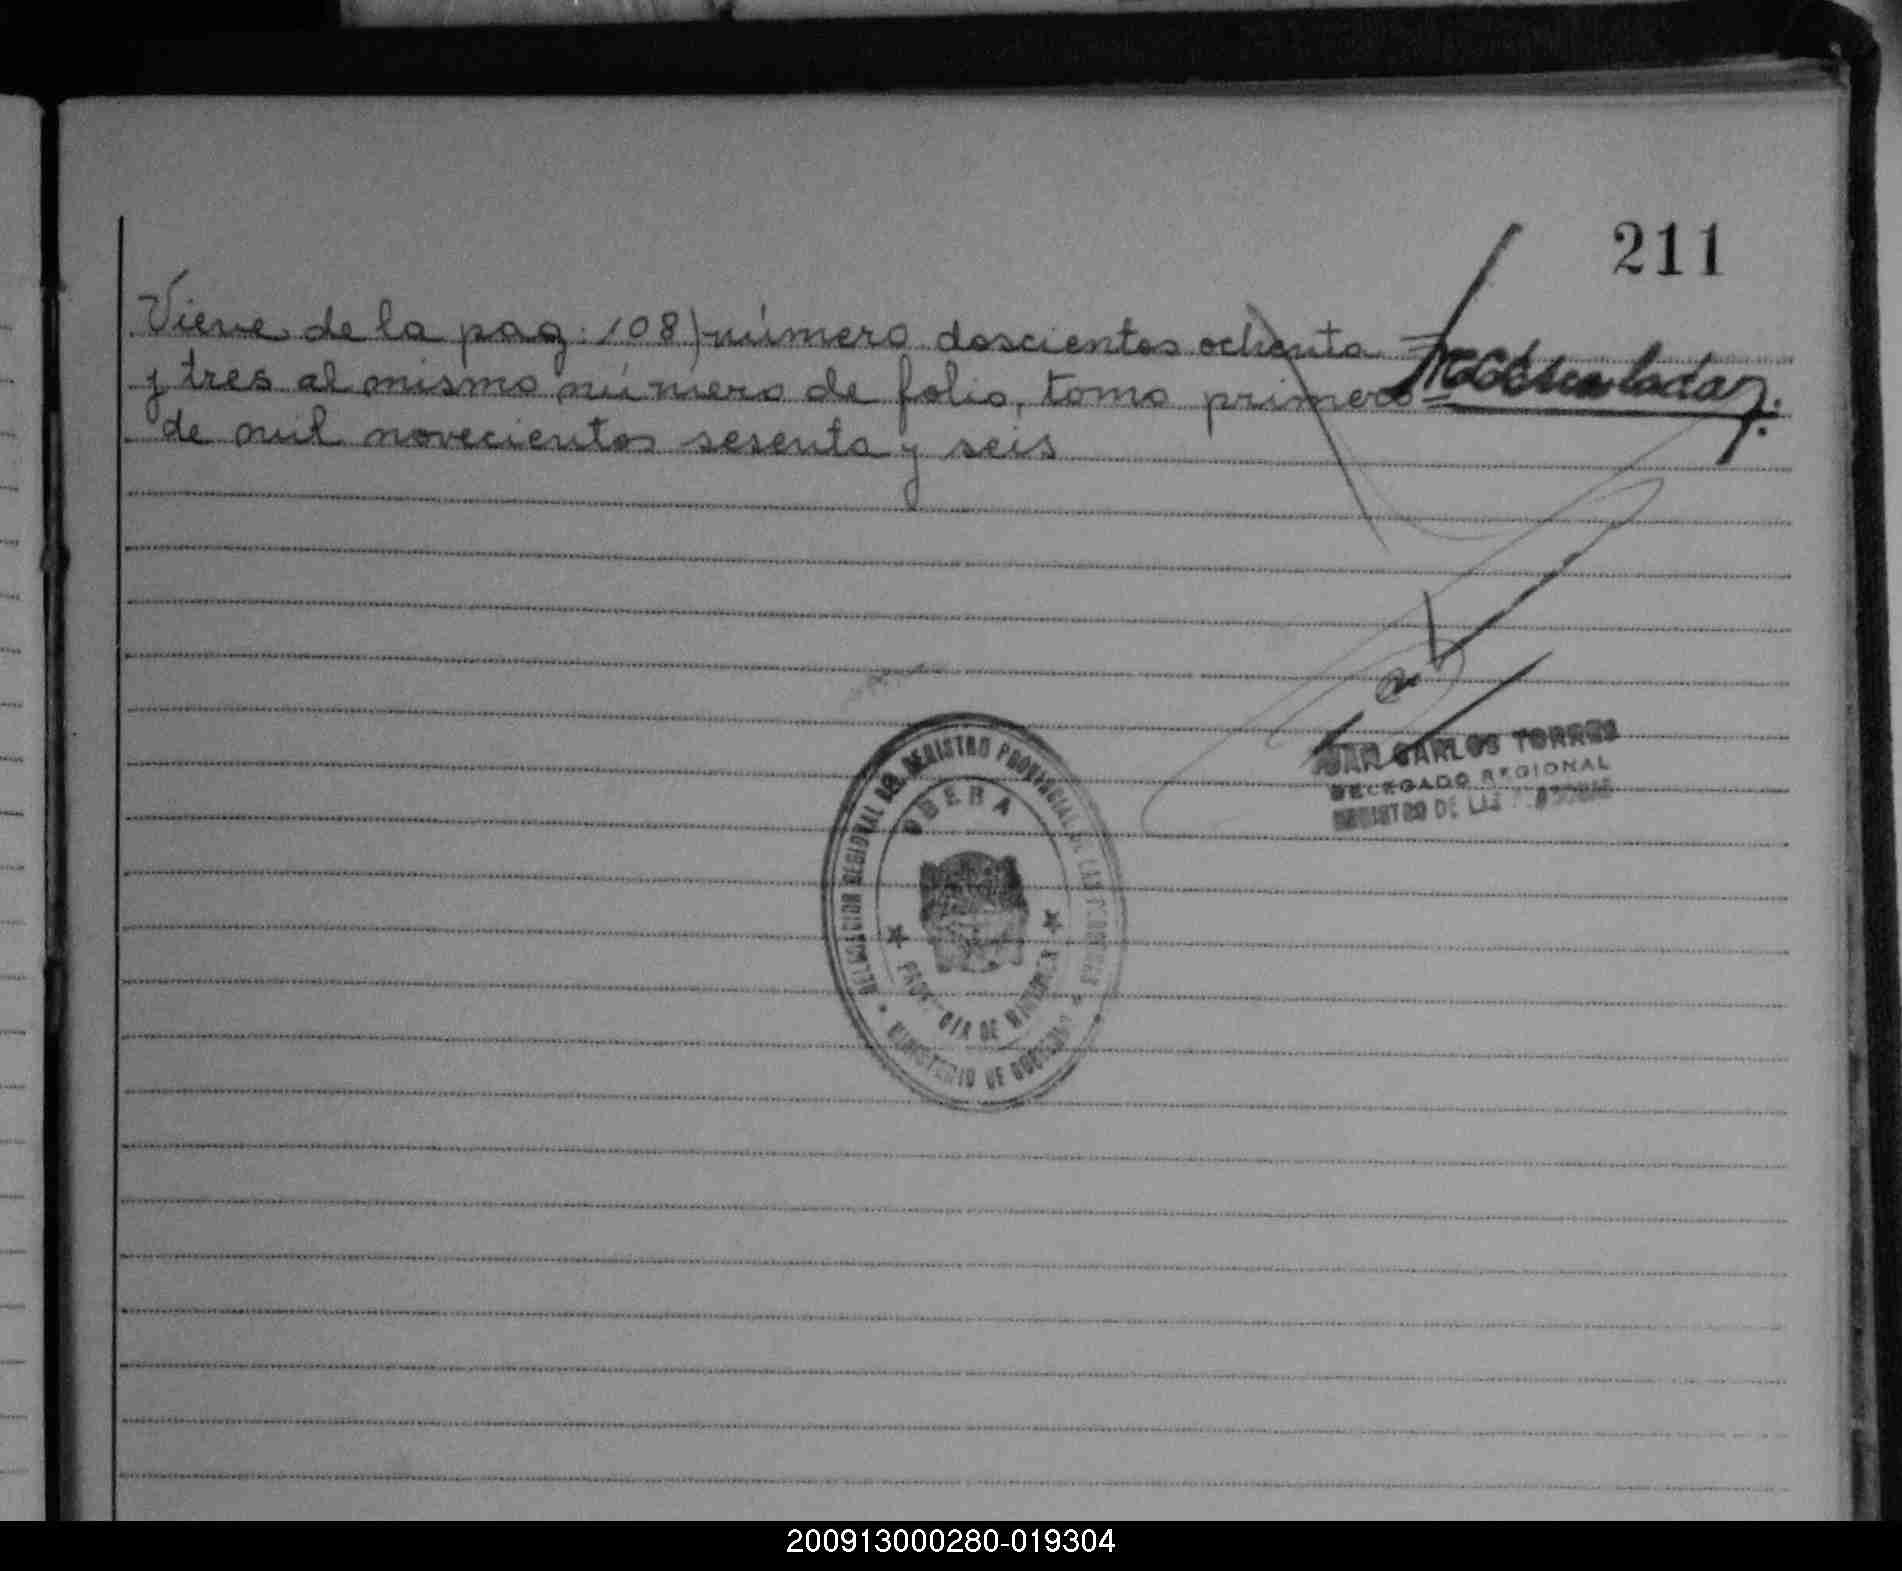 211
Viene de la pag. 108) número doscientos ochenta
y tres al mismo número de folio, tomo primero
de mil novecientos sesenta y seis
JUAN CARLOS TORRES
DELEGADO REGIONAL
REGISTRO DE LAS PERSONAS
DELEGACION REGIONAL DEL REGISTRO PROVINCIAL DE LAS PERSONAS
OBERA
PROVINCIA DE MISIONES
MINISTERIO DE GOBIERNO
200913000280-019304